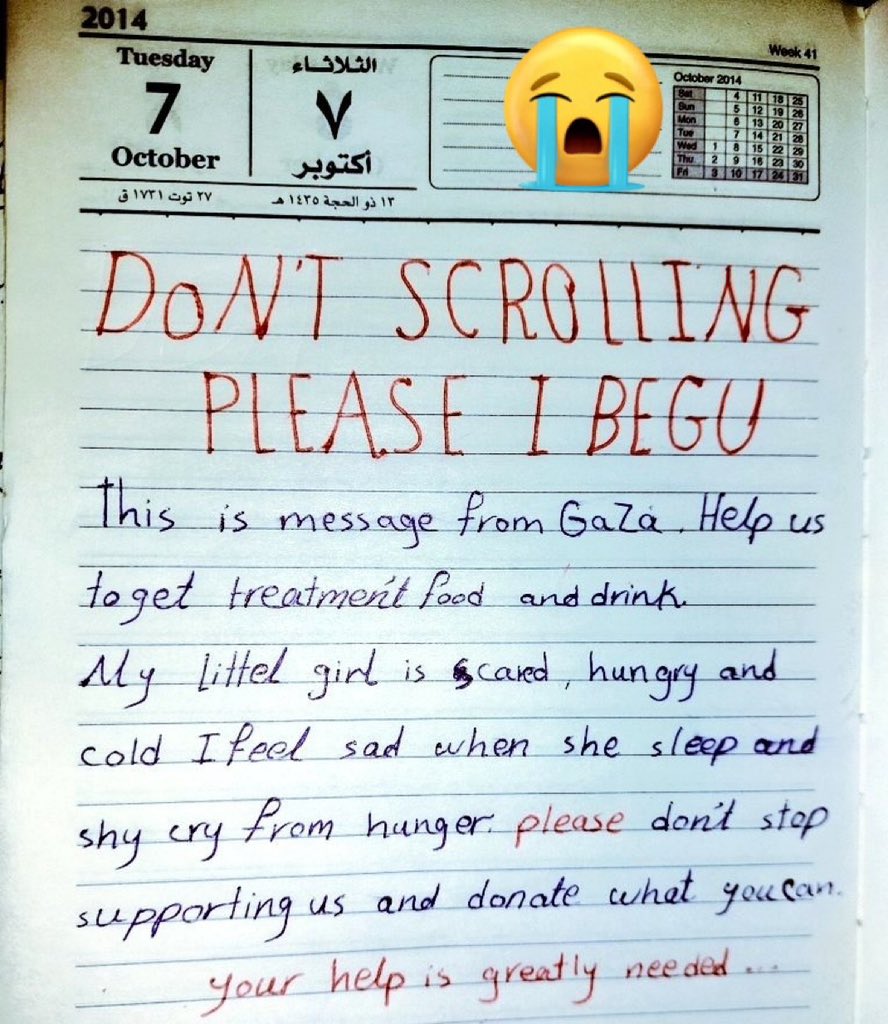 2014
Week 41
Tuesday
7
October
الثلاثاء
٧
أكتوبر
٢٧ توت ١٧٣١ ق
١٣ ذو الحجة ١٤٣٥ هـ
October 2014
Sat 4 11 18 25
Sun 5 12 19 26
Mon 6 13 20 27
Tue 7 14 21 28
Wed 1 8 15 22 29
Thu 2 9 16 23 30
Fri 3 10 17 24 31
DON'T SCROLLING
PLEASE I BEG U
This is message from GaZa. Help us
to get treatment food and drink.
My littel girl is scared, hungry and
cold I feel sad when she sleep and
shy cry from hunger. please don't stop
supporting us and donate what you can.
your help is greatly needed...